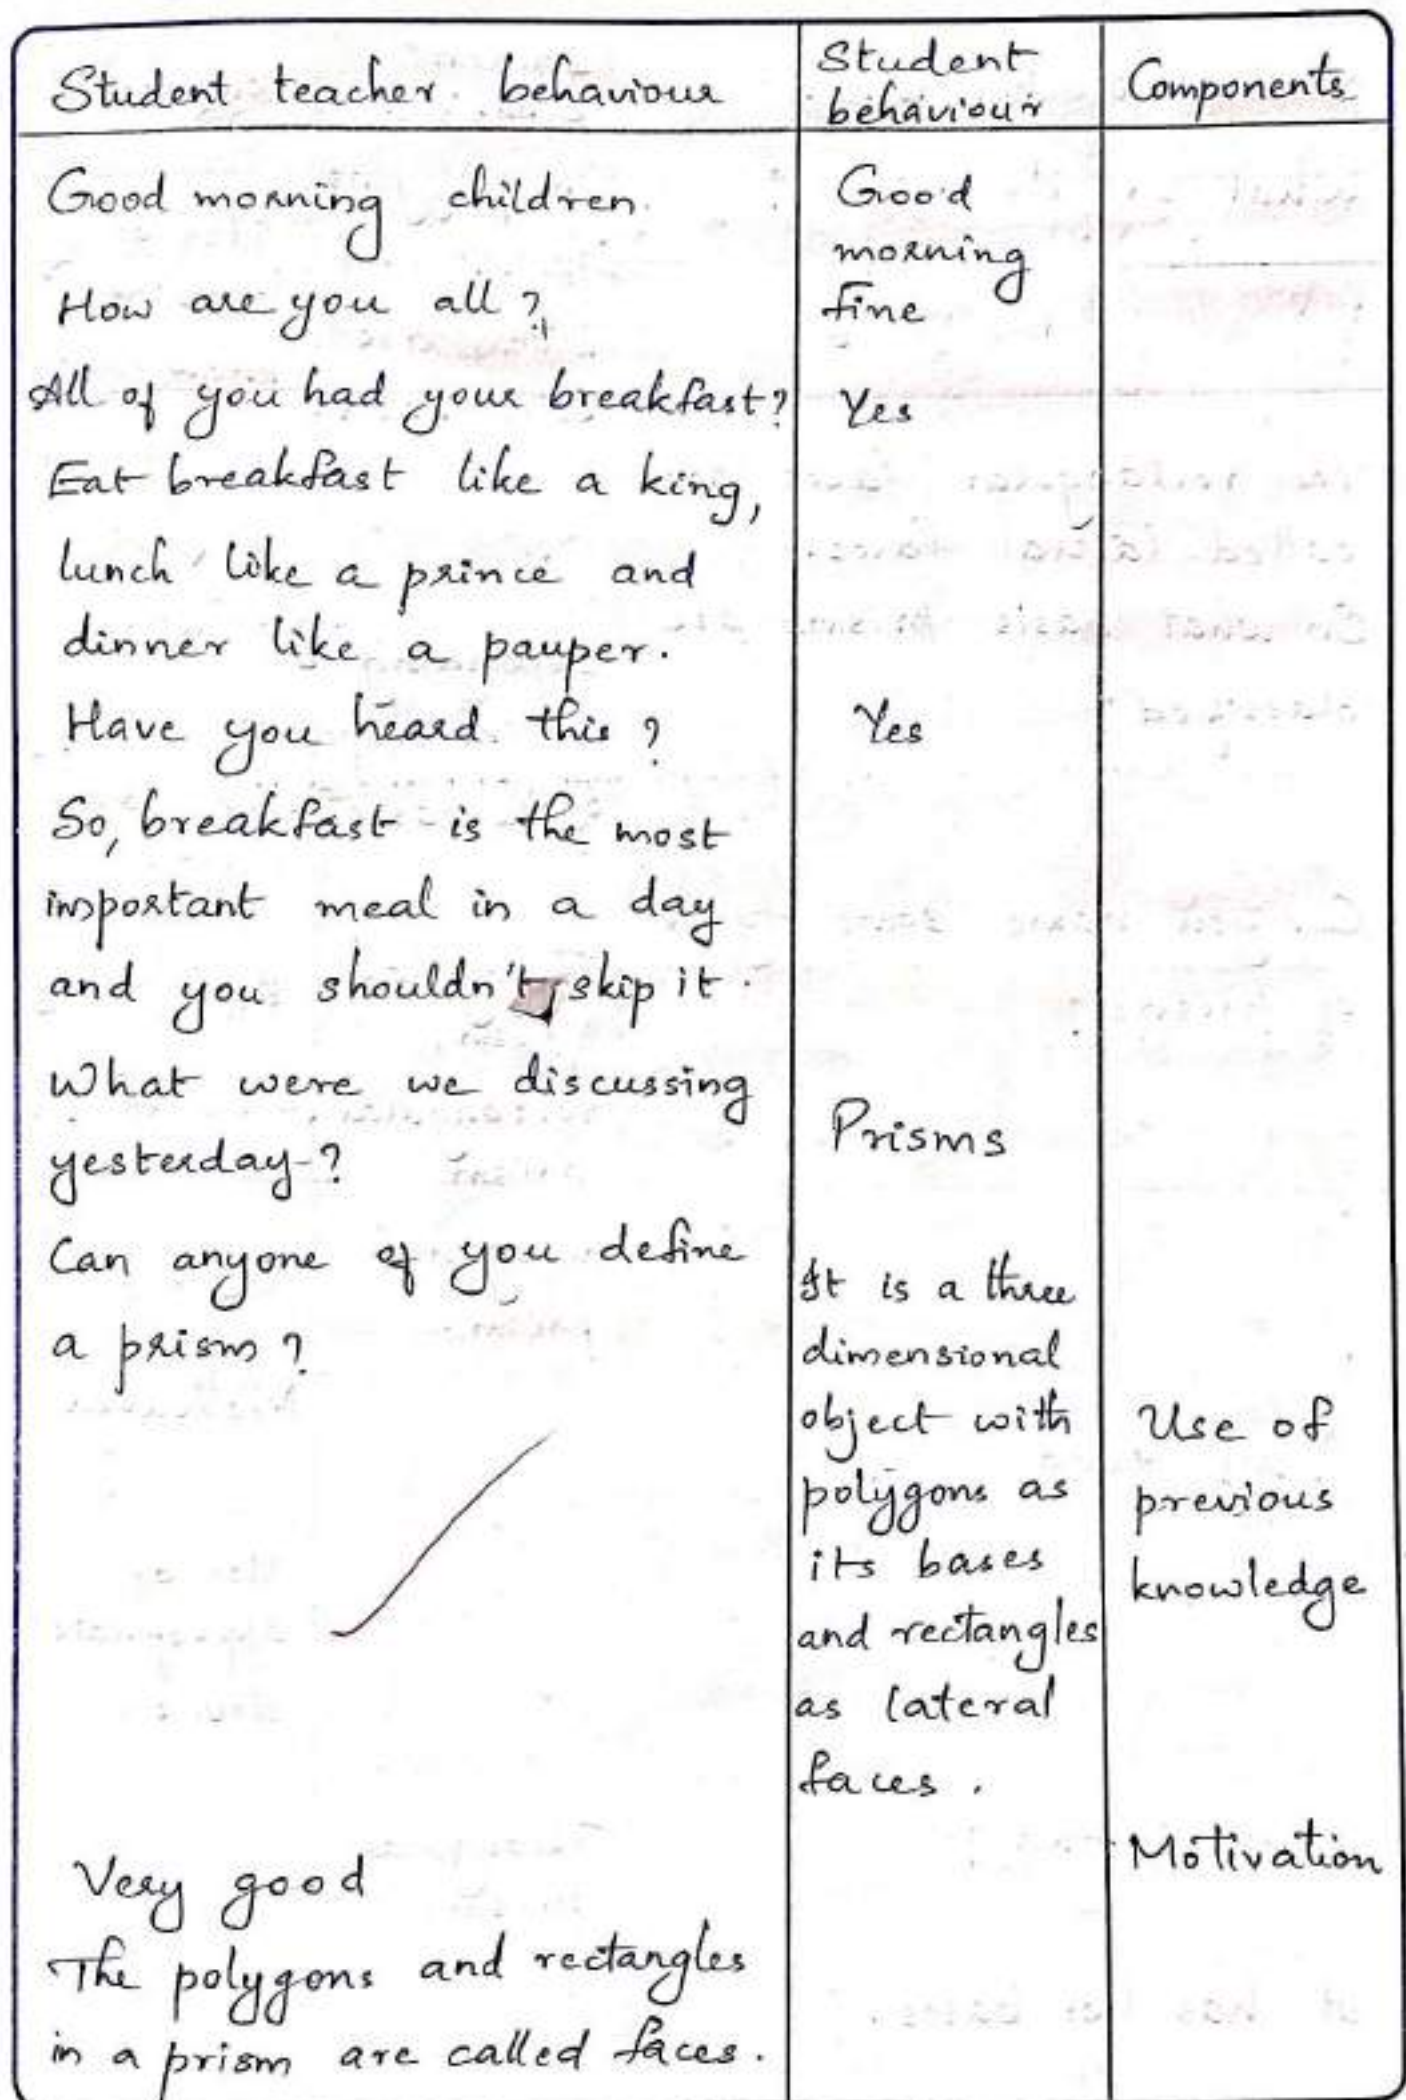 Student teacher behaviour
Student
behaviour
Components
Good morning children.
Good
morning
How are you all?
fine
All of you had your breakfast?
Yes
Eat breakfast like a king,
lunch like a prince and
dinner like a pauper.
Have you heard this?
Yes
So, breakfast is the most
important meal in a day
and you shouldn't skip it.
What were we discussing
yesterday?
Prisms
Can anyone of you define
a prism?
It is a three
dimensional
object with
polygons as
its bases
and rectangles
as lateral
faces.
Use of
previous
knowledge
Very good
Motivation
The polygons and rectangles
in a prism are called faces.